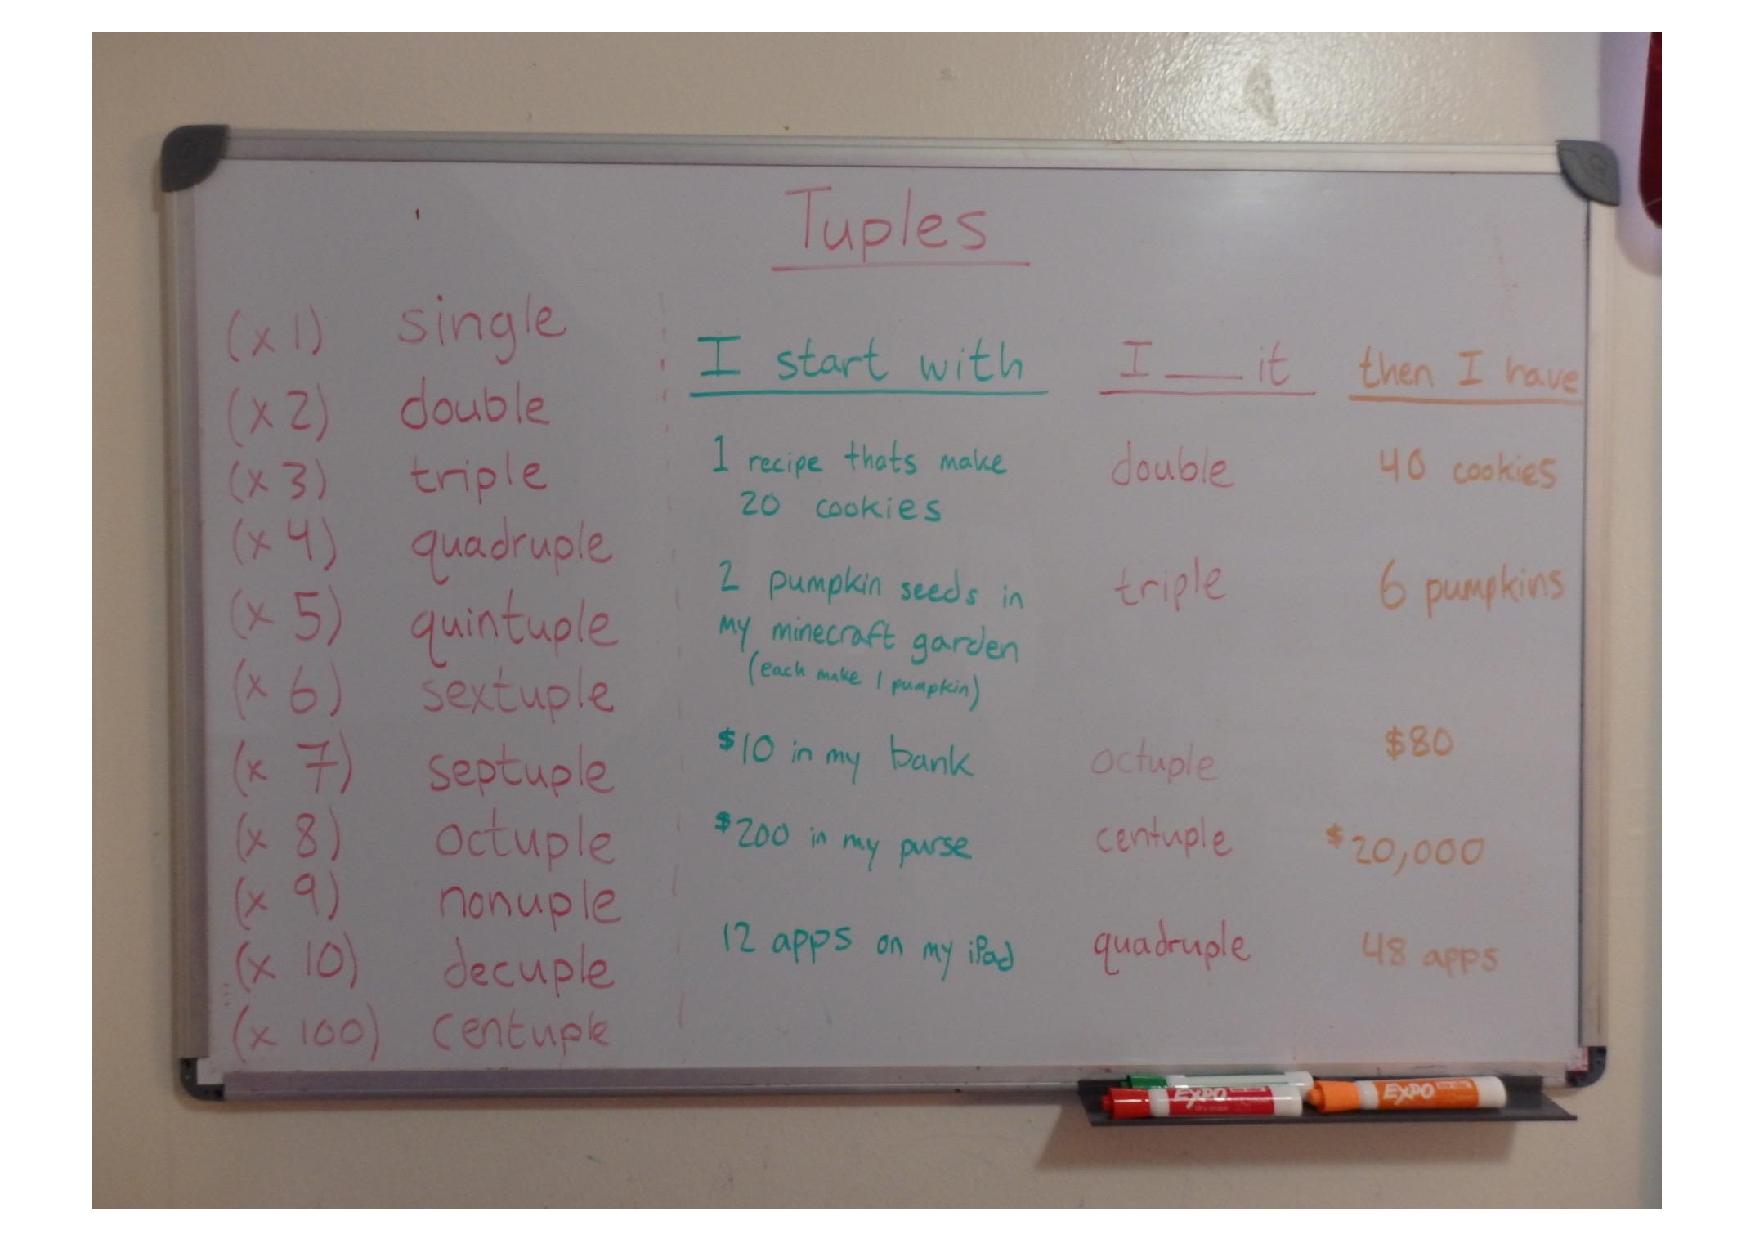 Tuples
(x 1) single
(x 2) double
(x 3) triple
(x 4) quadruple
(x 5) quintuple
(x 6) sextuple
(x 7) septuple
(x 8) octuple
(x 9) nonuple
(x 10) decuple
(x 100) centuple
I start with I ___ it then I have
1 recipe thats make double 40 cookies
20 cookies
2 pumpkin seeds in triple 6 pumpkins
my minecraft garden
(each make 1 pumpkin)
$10 in my bank octuple $80
$200 in my purse centuple $20,000
12 apps on my iPad quadruple 48 apps
EXPO EXPO